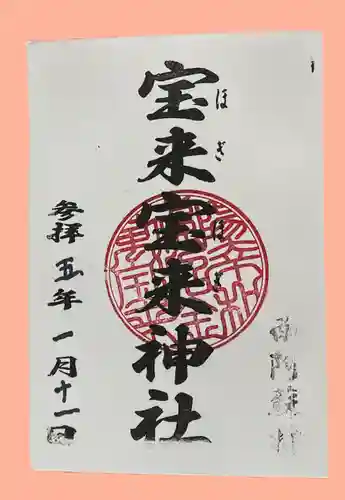 南阿蘇村
宝来宝来神社
ほぎ
ほぎ
参拝 五年 一月十一日